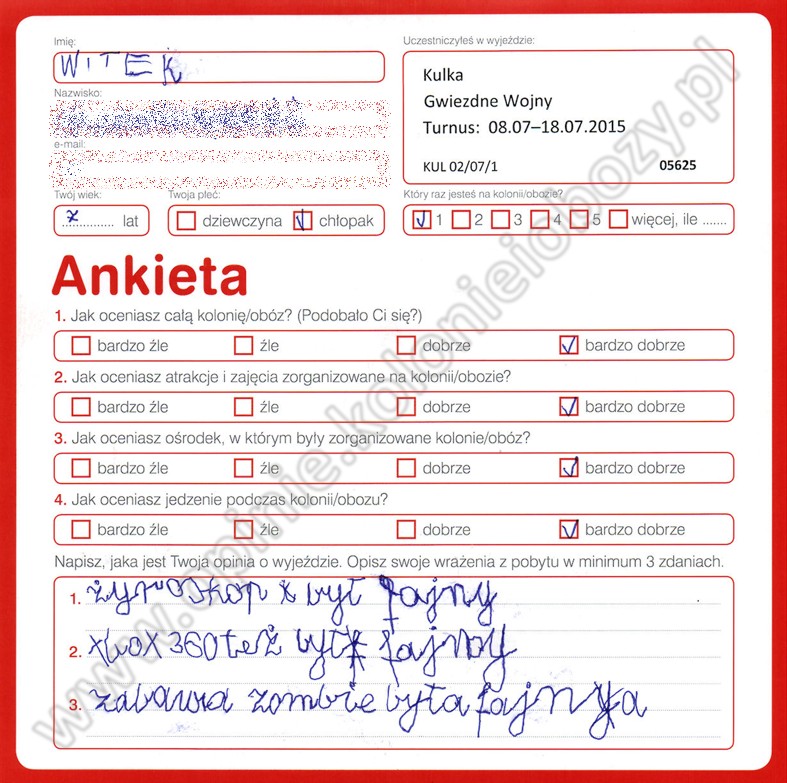 Imię:
WITEK
Uczestniczyłeś w wyjeździe:
Kulka
Gwiezdne Wojny
Turnus: 08.07–18.07.2015
KUL 02/07/1 05625
Nazwisko:
e-mail:
Twój wiek:
lat
Twoja płeć:
dziewczyna chłopak
Który raz jesteś na kolonii/obozie?
1 2 3 4 5 więcej, ile .......
Ankieta
1. Jak oceniasz całą kolonię/obóz? (Podobało Ci się?)
bardzo źle źle dobrze bardzo dobrze
2. Jak oceniasz atrakcje i zajęcia zorganizowane na kolonii/obozie?
bardzo źle źle dobrze bardzo dobrze
3. Jak oceniasz ośrodek, w którym były zorganizowane kolonie/obóz?
bardzo źle źle dobrze bardzo dobrze
4. Jak oceniasz jedzenie podczas kolonii/obozu?
bardzo źle źle dobrze bardzo dobrze
Napisz, jaka jest Twoja opinia o wyjeździe. Opisz swoje wrażenia z pobytu w minimum 3 zdaniach.
1. żyroskop był fajny
2. xbox 360 też był fajny
3. zabawa zombie była fajna
www.opinie.kolonieiobozy.pl